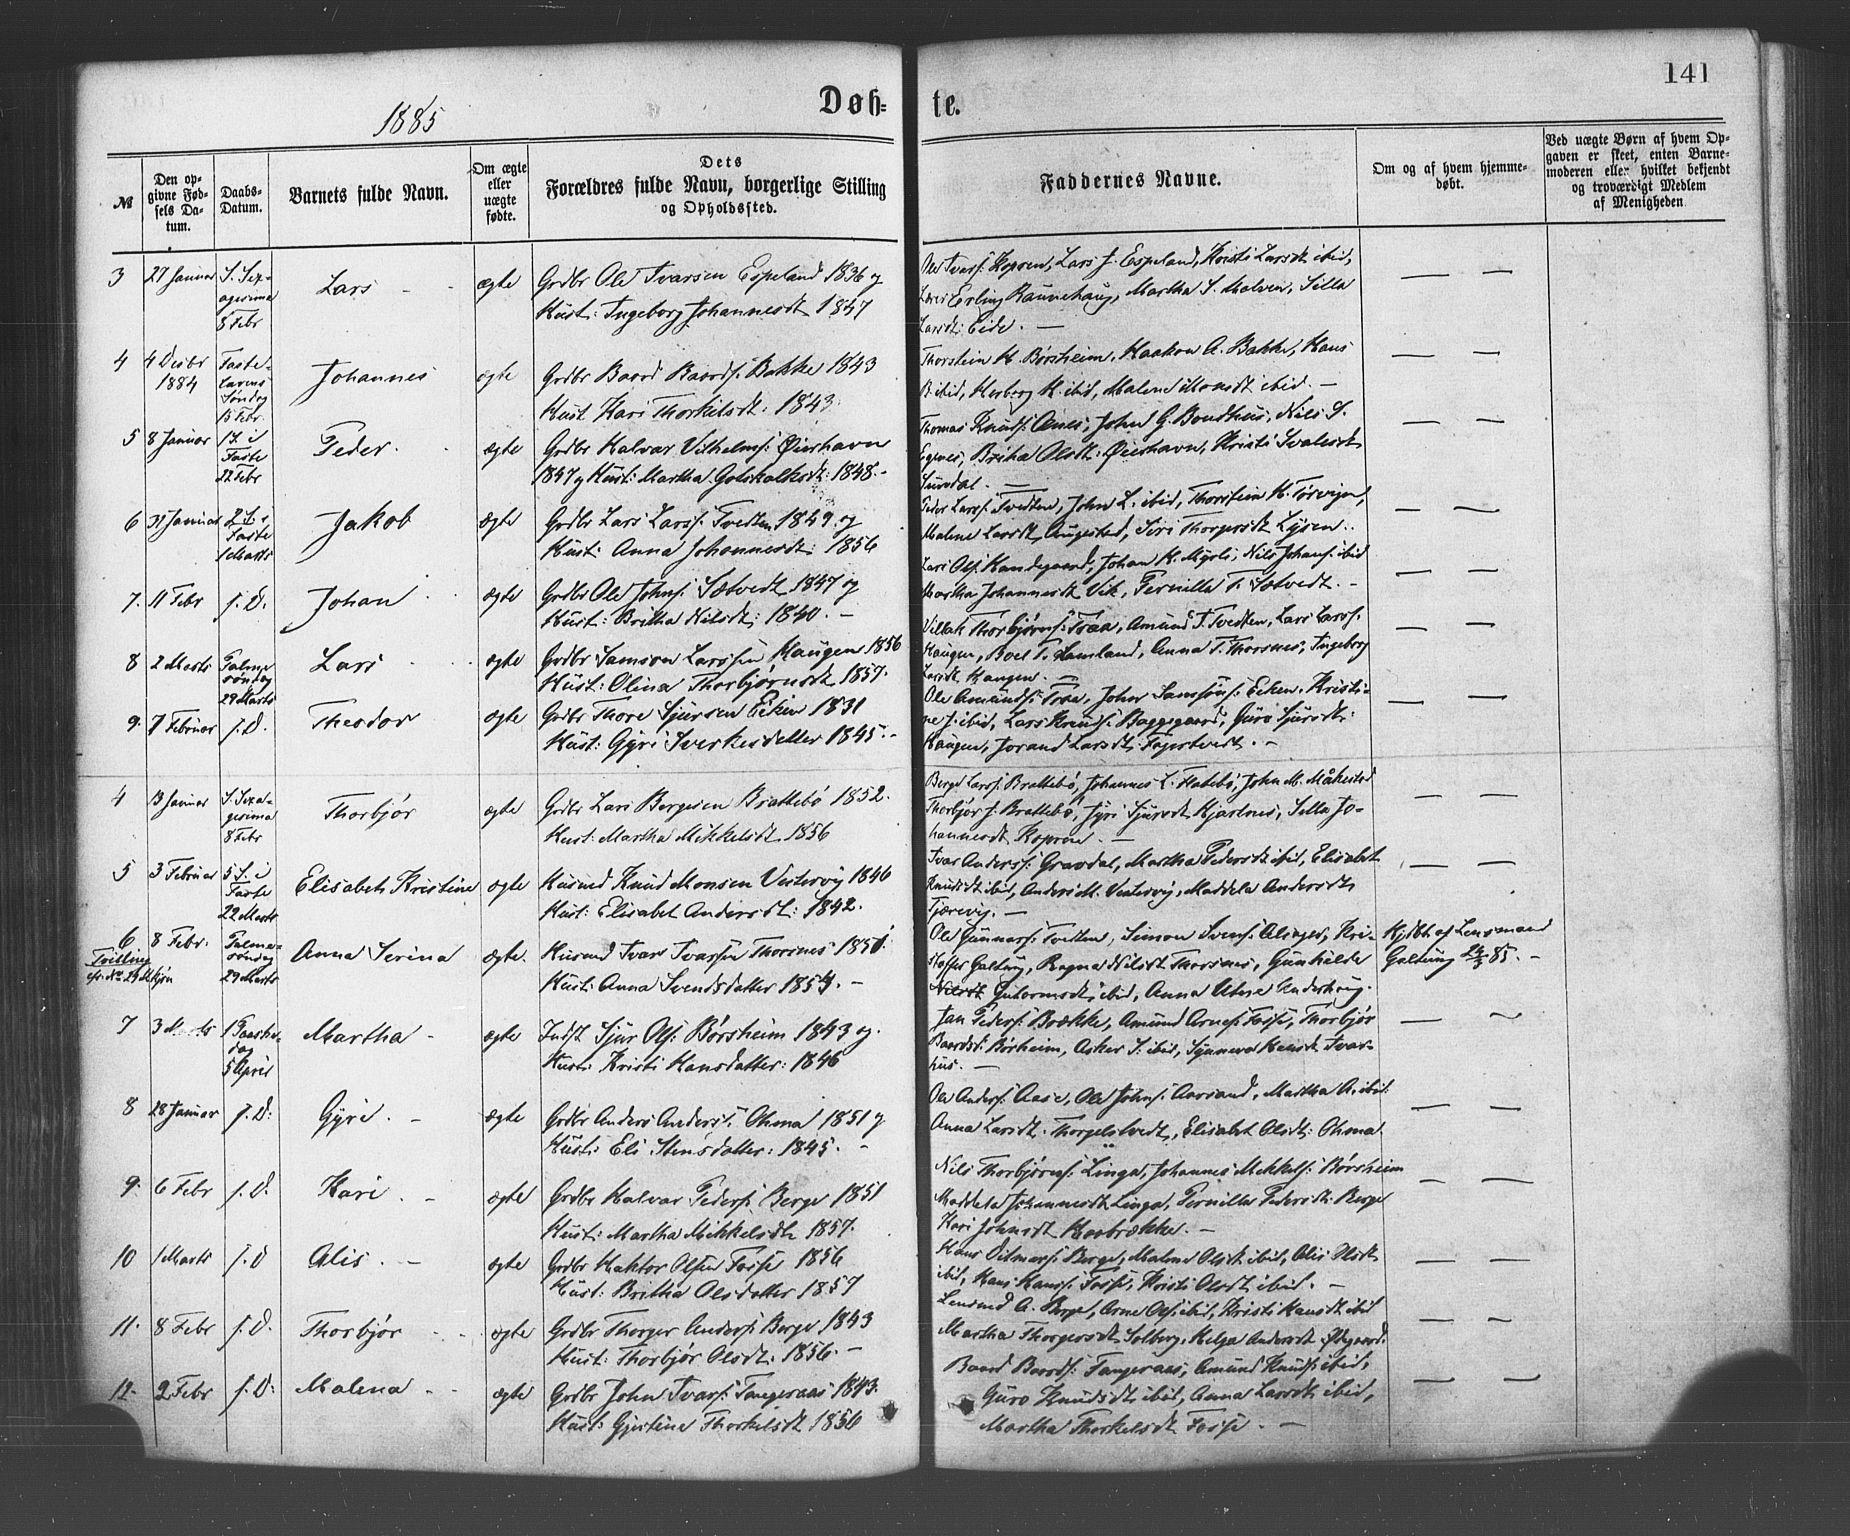 141
1885
Døb-te.
№
Den opgivne Fødsels Datum.
Daabs-Datum.
Barnets fulde Navn.
Om ægte eller uægte fødte.
Dets Forældres fulde Navn, borgerlige Stilling og Opholdssted.
Faddernes Navne.
Om og af hvem hjemmedøbt.
Ved uægte Børn af hvem Opgaven er skeet, enten Barnemoderen eller hvilket bekjendt og troværdigt Medlem af Menigheden
3 27 Januar S. Sexagesima 8 Febr Lars ægte Grdbr Ole Ivarsen Espeland 1836 og
Hust: Ingeborg Johannesdt 1847
Ole Ivars: Kopren, Lars J. Espeland, Kristi Larsdt ibid,
Erling Raunehaug, Martha S. Malven, Silla
Larsdt: Eide. —
4 4 Desbr 1884 Fastelavens Søndag 15 Febr. Johannes ægte Grdbr Baard Baards: Bakke 1843
Hust. Kari Thorkelsdt: 1843
Thorstein H. Børsheim, Haakon A. Bakke, Hans
B. ibid, Herborg H. ibid, Malene Monsdt ibid. —
5 8 Januar 1 S. i Faste 22 Febr Peder ægte Grdbr Halvar Vilhelms: Øierhavn
1847 og Hust: Martha Gotskalksdt: 1848. -
Thomas Knuds: Ænes, John G. Bondhus, Nils S.
Egenes, Britha Olsdt: Øierhavn, Kristi
Sundal. —
6 31 Januar 2 S. i Faste 1 Marts Jakob ægte Grdbr Lars Larss: Tvedten 1849 og
Hust: Anna Johannesdt: 1856
Peder Larss: Tvedten, John L. ibid, Thorstein H.
Malene Larsdt Augestad, Siri Thorgersdt Lysen.
7. 11 Febr s. D. Johan ægte Grdbr Ole Johns: Sætvedt 1847 og
Hust: Britha Nilsdt: 1840. —
Lars Ols: Handegaard, Johan H. Myrli, Nils Johans: ibid
Martha Johannesdt Vik, Pernilla T. Sætvedt. -
8 2 Marts Palmesøndag 29 Marts Lars ægte Grdbr Samson Larssen Haugen 1856
Hust: Olina Thorbjørnsdt 1857.
Villak Thorbjørns: Traa, Amund T. Tvedten, Lars Larss:
Haugen, Boel T. Samland, Anna T. Thorsnes, Ingeborg
Larsdt Haugen. —
9. 7 Februar s. D. Theodor ægte Grdbr Thore Sjursen Eiken 1831
Hust: Gyri Sverkesdatter 1845. -
Ole Amunds: Traa, John Samsons: Eiken, Kristine
J. ibid, Lars Knuds: Baggegaard, Guro Sjursdt:
Haugen, Jorand Larsdt: Fagertvedt. —
4 13 Januar S. Sexagesima 8 Febr Thorbjør ægte Grdbr Lars Bergesen Brattebø 1852.
Hust: Martha Mikkelsdt 1856
Berge Larss: Brattebø, Johannes L. Hatebø, John M. Måkestad
Thorbjør J. Brattebø, Gyri Sjursdt Kjartnes, Silla Johannesdt Kopren. —
5 3 Februar 5 S. i Faste 22 Marts Elisabeth Kristine ægte Husmd Knud Monsen Vestervig 1846
Hust: Elisabet Andersdt: 1842.
Ivar Anders: Gravdal, Martha Pedersdt ibid, Elisabet
Knudsdt ibid, Anders M. Vestervig, Maddela Andersdt
Tjærevig. —
6 Tvilling cfr. No 29 Mkjøn 8 Febr. Palmesøndag 29 Marts Anna Serina ægte. Husmd Ivar Ivarsen Thorsnes 1850:
Hust: Anna Svendsdatter 1854. —
Ole Gunnars: Tvetten, Simon Svens: Alsager, Kristoffer Galtung, Ragna Nilsdt Thorsnes, Gunhilde
Nilsdt Gutormsdt ibid, Anna Utne Anderhaug.
Hjdbt af Lensmand Galtung 24/3 85. -
7 3 Marts 1 Paaskedag 5 April Martha - ægte Indst Sjur Ols: Børsheim 1843 og
Hust: Kristi Hansdatter: 1846
Jan Peders: Brække, Amund Arnes: Fosse, Thorbjør
Baardsd: Børsheim, Asker S. ibid, Synneva Hansdt Ivarhus. —
8 28 Januar s. D: Gyri. - ægte Grdbr Anders Anders: Ohma 1851 og
Hust: Eli Stensdatter: 1845. -
Ole Anders: Aase, Ole Johns: Aarsand, Martha A. ibid:
Anna Larsdt. Thorgelstvedt, Elisabet Olsdt: Ohma.
9. 6 Febr s. D. Kari. - ægte Grdbr Halvar Peders: Berge 1851
Hust: Martha Mikkelsdt 1857.
Nils Thorbjørns: Linga, Johannes Mikkels: Børsheim
Maddela Johannesdt Linga, Pernilla Pedersdt: Berge
Kari Johnsdt Haabrække. —
10 1 Marts s. D Alis. - ægte Grdbr Haktor Olsen Fosse 1856
Hust: Britha Olsdatter 1857
Hans Ditmars: Berge, Malene Olsdt ibid, Alis Olsdt
ibid, Hans Hans: Fosse, Kristi Olsdt ibid. —
11. 8 Febr s. D. Thorbjør ægte Grdbr Thorger Anders: Berge 1843
Hust: Thorbjør Olsdt: 1856. —
Lensmd A. Berge, Arne Ols: ibid, Kristi Hansdt ibid
Martha Thorgersdt Solberg, Helga Andersdt Ødegaard.
12. 2 Febr s. D: Malena - ægte Grdbr John Ivars: Tangeraas 1843.
Hust: Gjertine Thorkelsdt 1856
Baard Baards: Tangeraas, Amund Knuds: ibid,
Guro Knudsdt ibid, Anna Larsdt ibid,
Martha Thorkelsdt Fosse. —